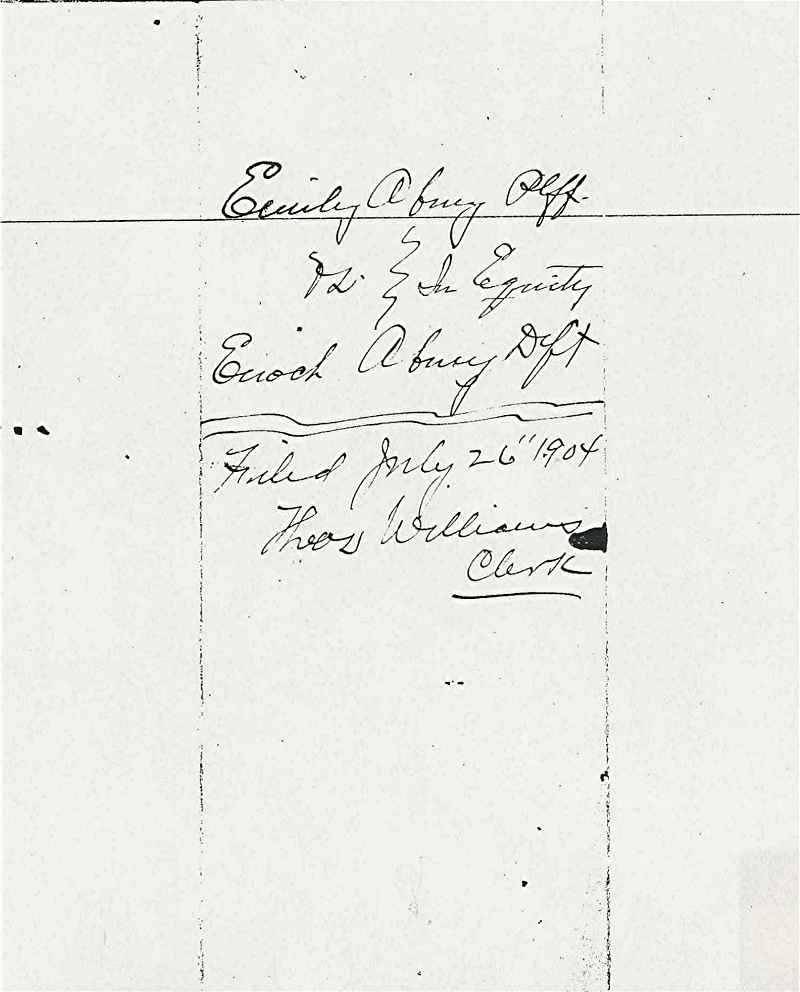 Emily Abney Plff.
vs. } In Equity
Enoch Abney Dft
Filed July 26" 1904
Thos Williams
Clerk